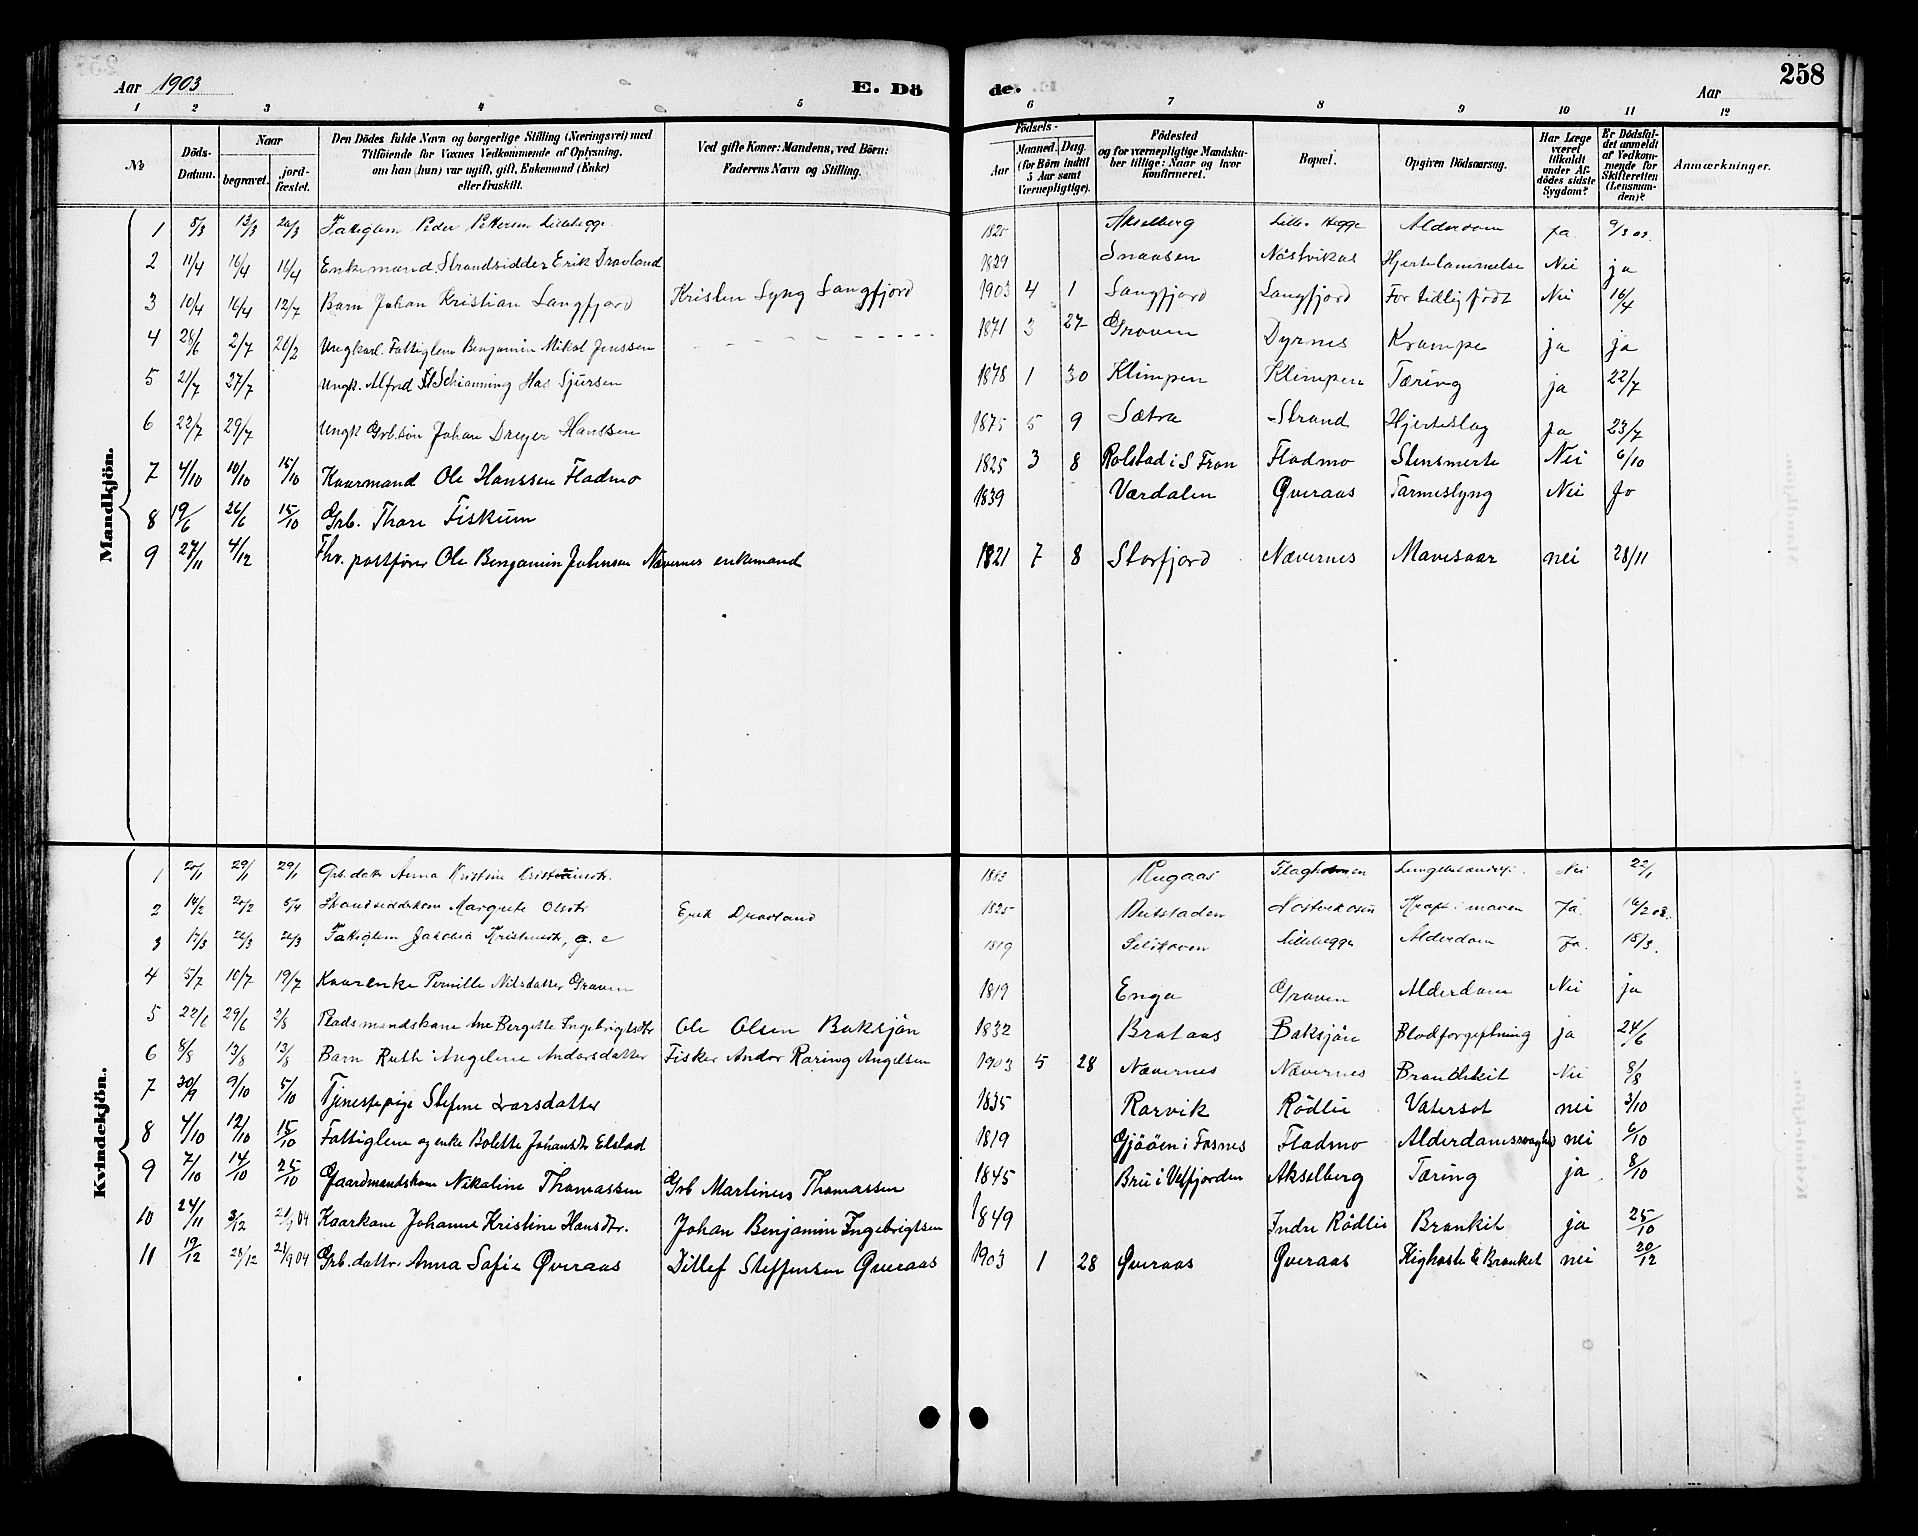 Aar 1903 E. Dö de. Aar 258
1 2 3 4 5 6 7 8 9 10 11 12
№ Döds-Datum. Naar begravet. jord-fæstet. Den Dödes fulde Navn og borgerlige Stilling (Næringsvei) med Tilföiende for Voxnes Vedkommende af Oplysning, om han (hun) var ugift, gift, Enkemand (Enke) eller fraskilt. Ved gifte Koner: Mandens, ved Börn: Faderens Navn og Stilling. Födsels- Aar Maaned. Dag. (for Börn indtil 5 Aar samt Værnepligtige). Födested og for værnepligtige Mandska-ber tillige: Naar og hvor konfirmeret. Bopæl. Opgiven Dödsaarsag. Har Læge været tilkaldt under Af-dödes sidste Sygdom? Er Dödsfal-det anmeldt af Vedkom-mende for Skifteretten (Lensman-den)? Anmærkninger.
Mandkjön.
1 8/3 13/3 20/3 Fattiglem Peder Pettersen Lillehegge 1825 Akselberg Lille Hegge Alderdom Ja 9/3 03.
2 11/4 16/4 16/4 Enkemand Strandsidder Erik Dravland 1829 Snaasen Nöstvikas Hjertelammelse Nei ja
3 10/4 16/4 12/7 Barn Johan Kristian Langfjord Kristen Lyng Langfjord 1903 4 1 Langfjord Langfjord For tidlig født Nei 16/4
4 28/6 2/7 Ungkarl. Fattiglem Benjamin Mikal Jenssen 1871 3 27 Groven Dyrnes Krampe ja ja
5 21/7 27/7 Ungk. Alfred Schianning Has Sjursen 1878 1 30 Klimpen Klimpen Tæring ja 22/7
6 22/7 29/7 Ungk Grb.søn Johan Dreyer Hanssen 1875 5 9 Sætra Strand Hjerteslag ja 23/7
7 4/10 10/10 15/10 Kaarmand Ole Hanssen Fladmo 1825 3 8 Rolstad i S Fron Fladmo Stensmerte Nei 6/10
8 19/6 26/6 15/10 Grb. Thore Fiskum 1839 Værdalen Qveraas Tarmeslyng Nei Jo
9 27/11 4/12 Fhv. postfører Ole Benjamin Johnsen Nævernes enkemand 1821 7 8 Storfjord Nævernes Mavesaar nei 28/11
Kvindekjön.
1 20/1 29/1 29/1 Grb.datr Anna Kristine 1883 Flagholmen Nei 22/1
2 14/2 20/2 5/4 Margrete Olsdtr Erik Dravland 1825 Beitstaden Kræft i maven Ja. 16/2 03.
3 17/3 26/3 26/3 Fattiglem Jakobia 1819 Lillehegge Alderdom Ja. 18/3.
4 5/7 10/7 19/7 Kaarenke Pernille Nilsdatter Groven 1819 Enga Groven Alderdom Nei ja
5 22/6 29/6 2/8 Baadsmandskone Ane Bergette Ingebrigtsdtr Ole Olsen Baksjön 1832 Brataas Baksjön Blodforgiftning ja 24/6
6 8/8 13/8 13/8 Barn Ruth Angeline Andorsdatter Fisker Andor Roring Angelsen 1903 5 28 Nævernes Nævernes Bronthikit Nei 8/8
7 30/9 9/10 5/10 Tjenestepige Stefine Larsdatter 1835 Rorvik Rödlie Vatersot nei 3/10
8 4/10 12/10 15/10 Fattiglem og enke Bolette Johansdtr Elstad 1819 Gjööen i Fosnes Fladmo Alderdomssvaghed nei 6/10
9 7/10 14/10 25/10 Gaardmandskone Nikoline Thomassen Grb Martinus Thomassen 1845 Bru i Velfjorden Akselberg Tæring ja 8/10
10 24/11 3/12 21/1 04 Kaarkone Johanne Kristine Hansdtr. Johan Benjamin Ingebrigtsen 1849 Indre Rödlie Bronkit ja 25/10
11 19/12 28/12 21/1 04 Grb.dattr. Anna Sofie Qveraas Ditlef Steffensen Qveraas 1903 1 28 Qveraas Qveraas Kighoste & Bronket nei 20/12